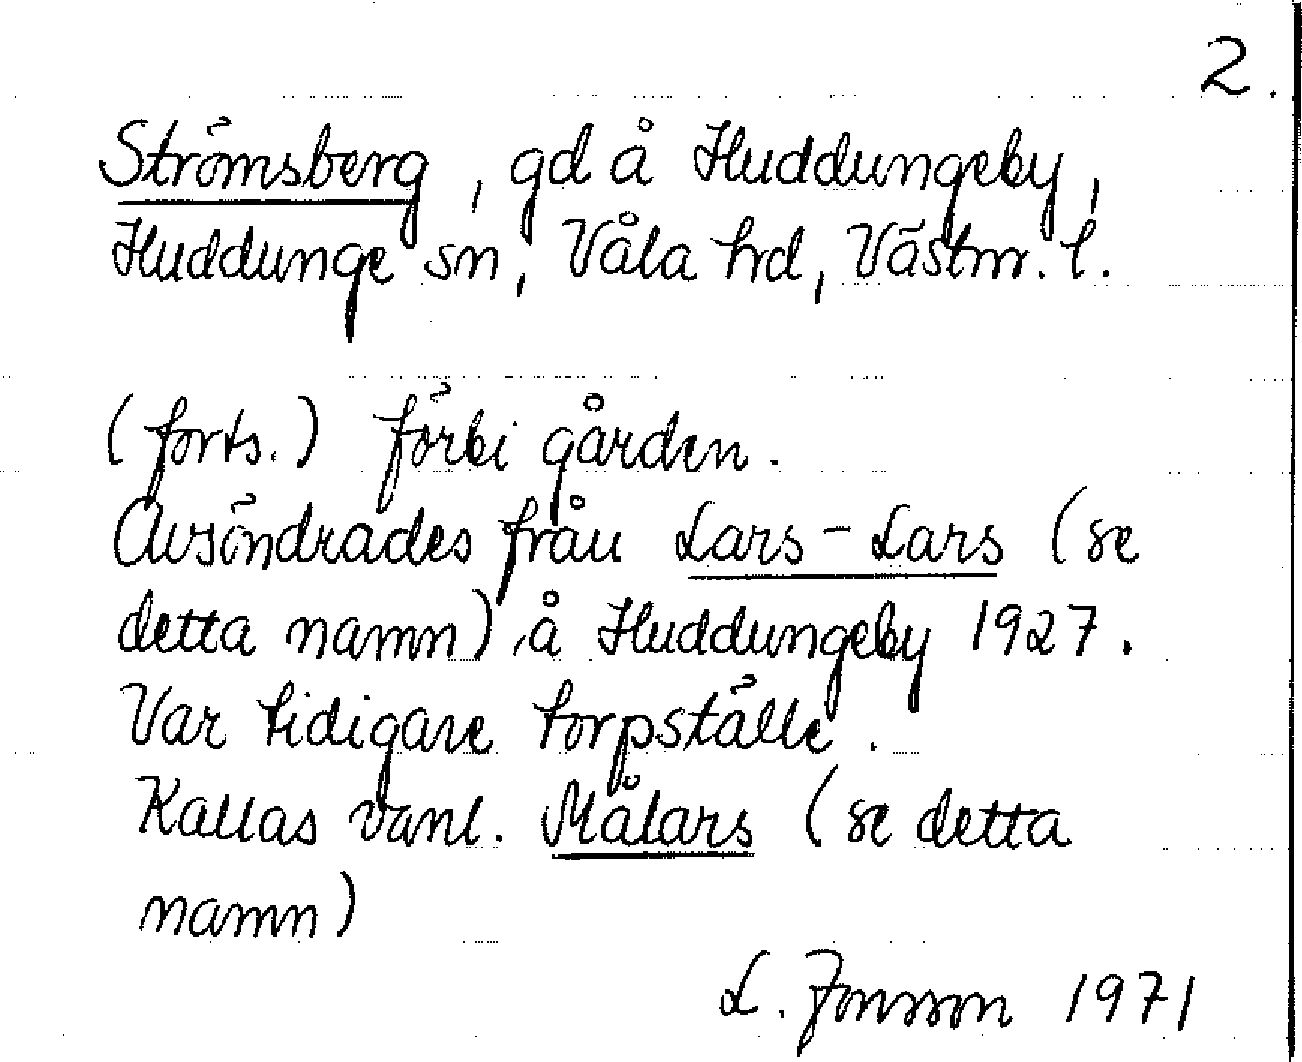 2.
Strömsberg, gd å Huddungeby,
Huddunge sn, Våla hd, Västm. l.
(forts.) förbi gården.
Avsöndrades från Lars-Lars (se
detta namn) å Huddungeby 1927.
Var tidigare torpställe.
Kallas vanl. Målars (se detta
namn)
L. Jonsson 1971